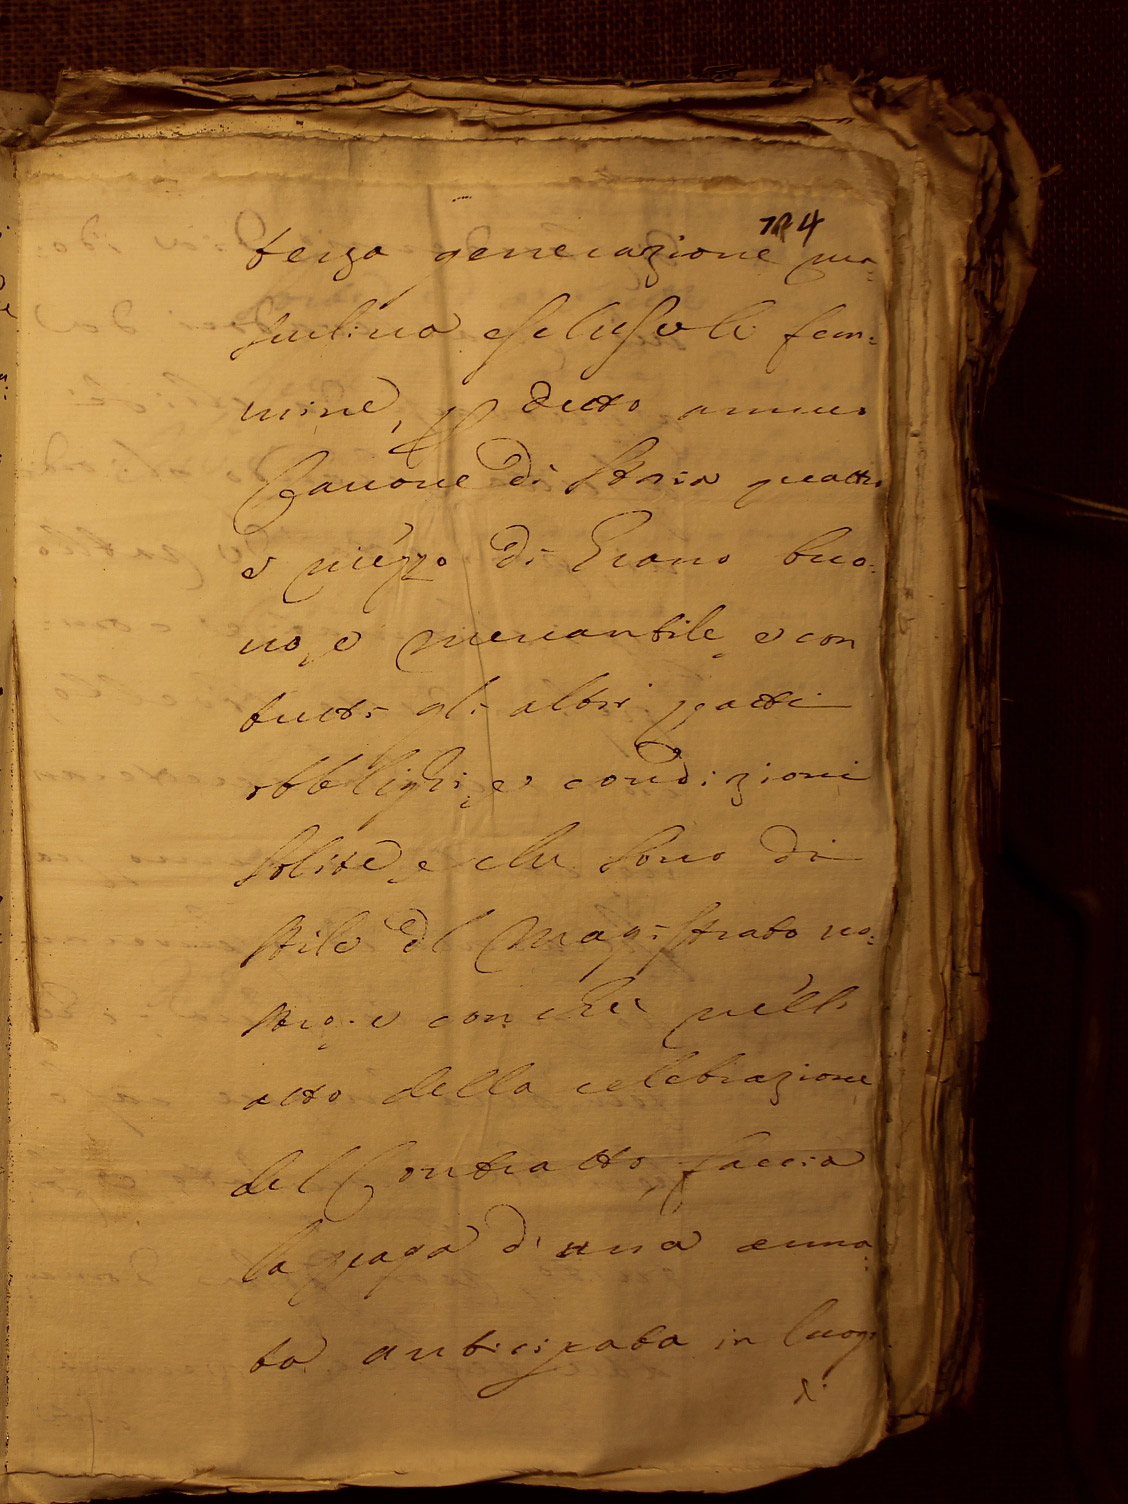 124
terza generazione ma:
sculina esclusole fem:
mine, per detto annuo
Canone di staia quattro
e mezzo di Grano buo:
no, e mercantile, e con
tutti gli altri patti
obblighi, e condizioni
solite, e che sono di
stile del Magistrato no:
stro, e con che nell'
atto della celebrazione
del Contratto, faccia
la paga d'una anna:
ta anticipata in luogo
di